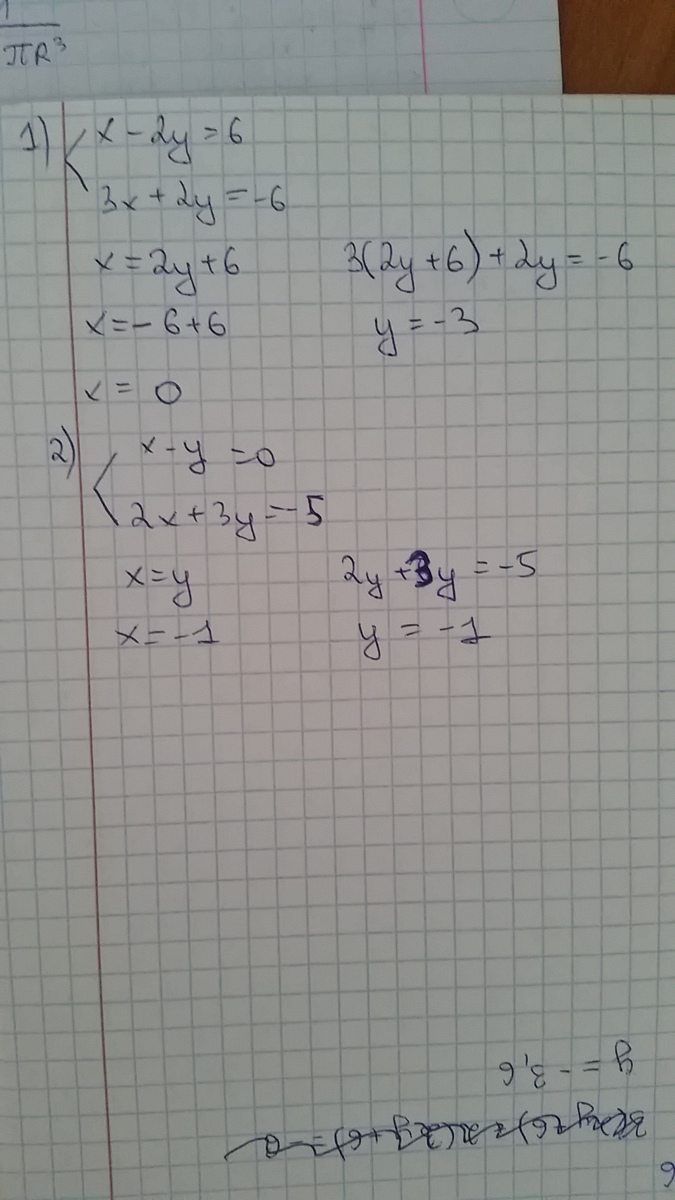 1
πR³
1) x - 2y = 6
3x + 2y = -6
x = 2y + 6    3(2y + 6) + 2y = -6
x = - 6 + 6    y = -3
x = 0
2) x - y = 0
2x + 3y = -5
x = y    2y + 3y = -5
x = -1    y = -1
y = - 3,6